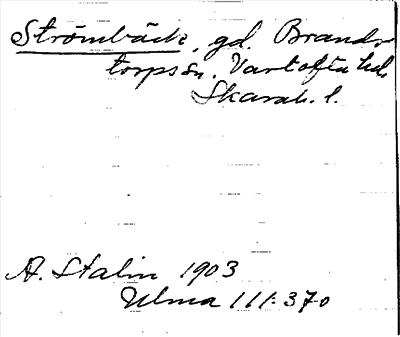 Strömbäck, gd. Brands-
torps sn, Vartofta hd,
Skarab. l.
A. Stalin 1903
Ulma 111:370